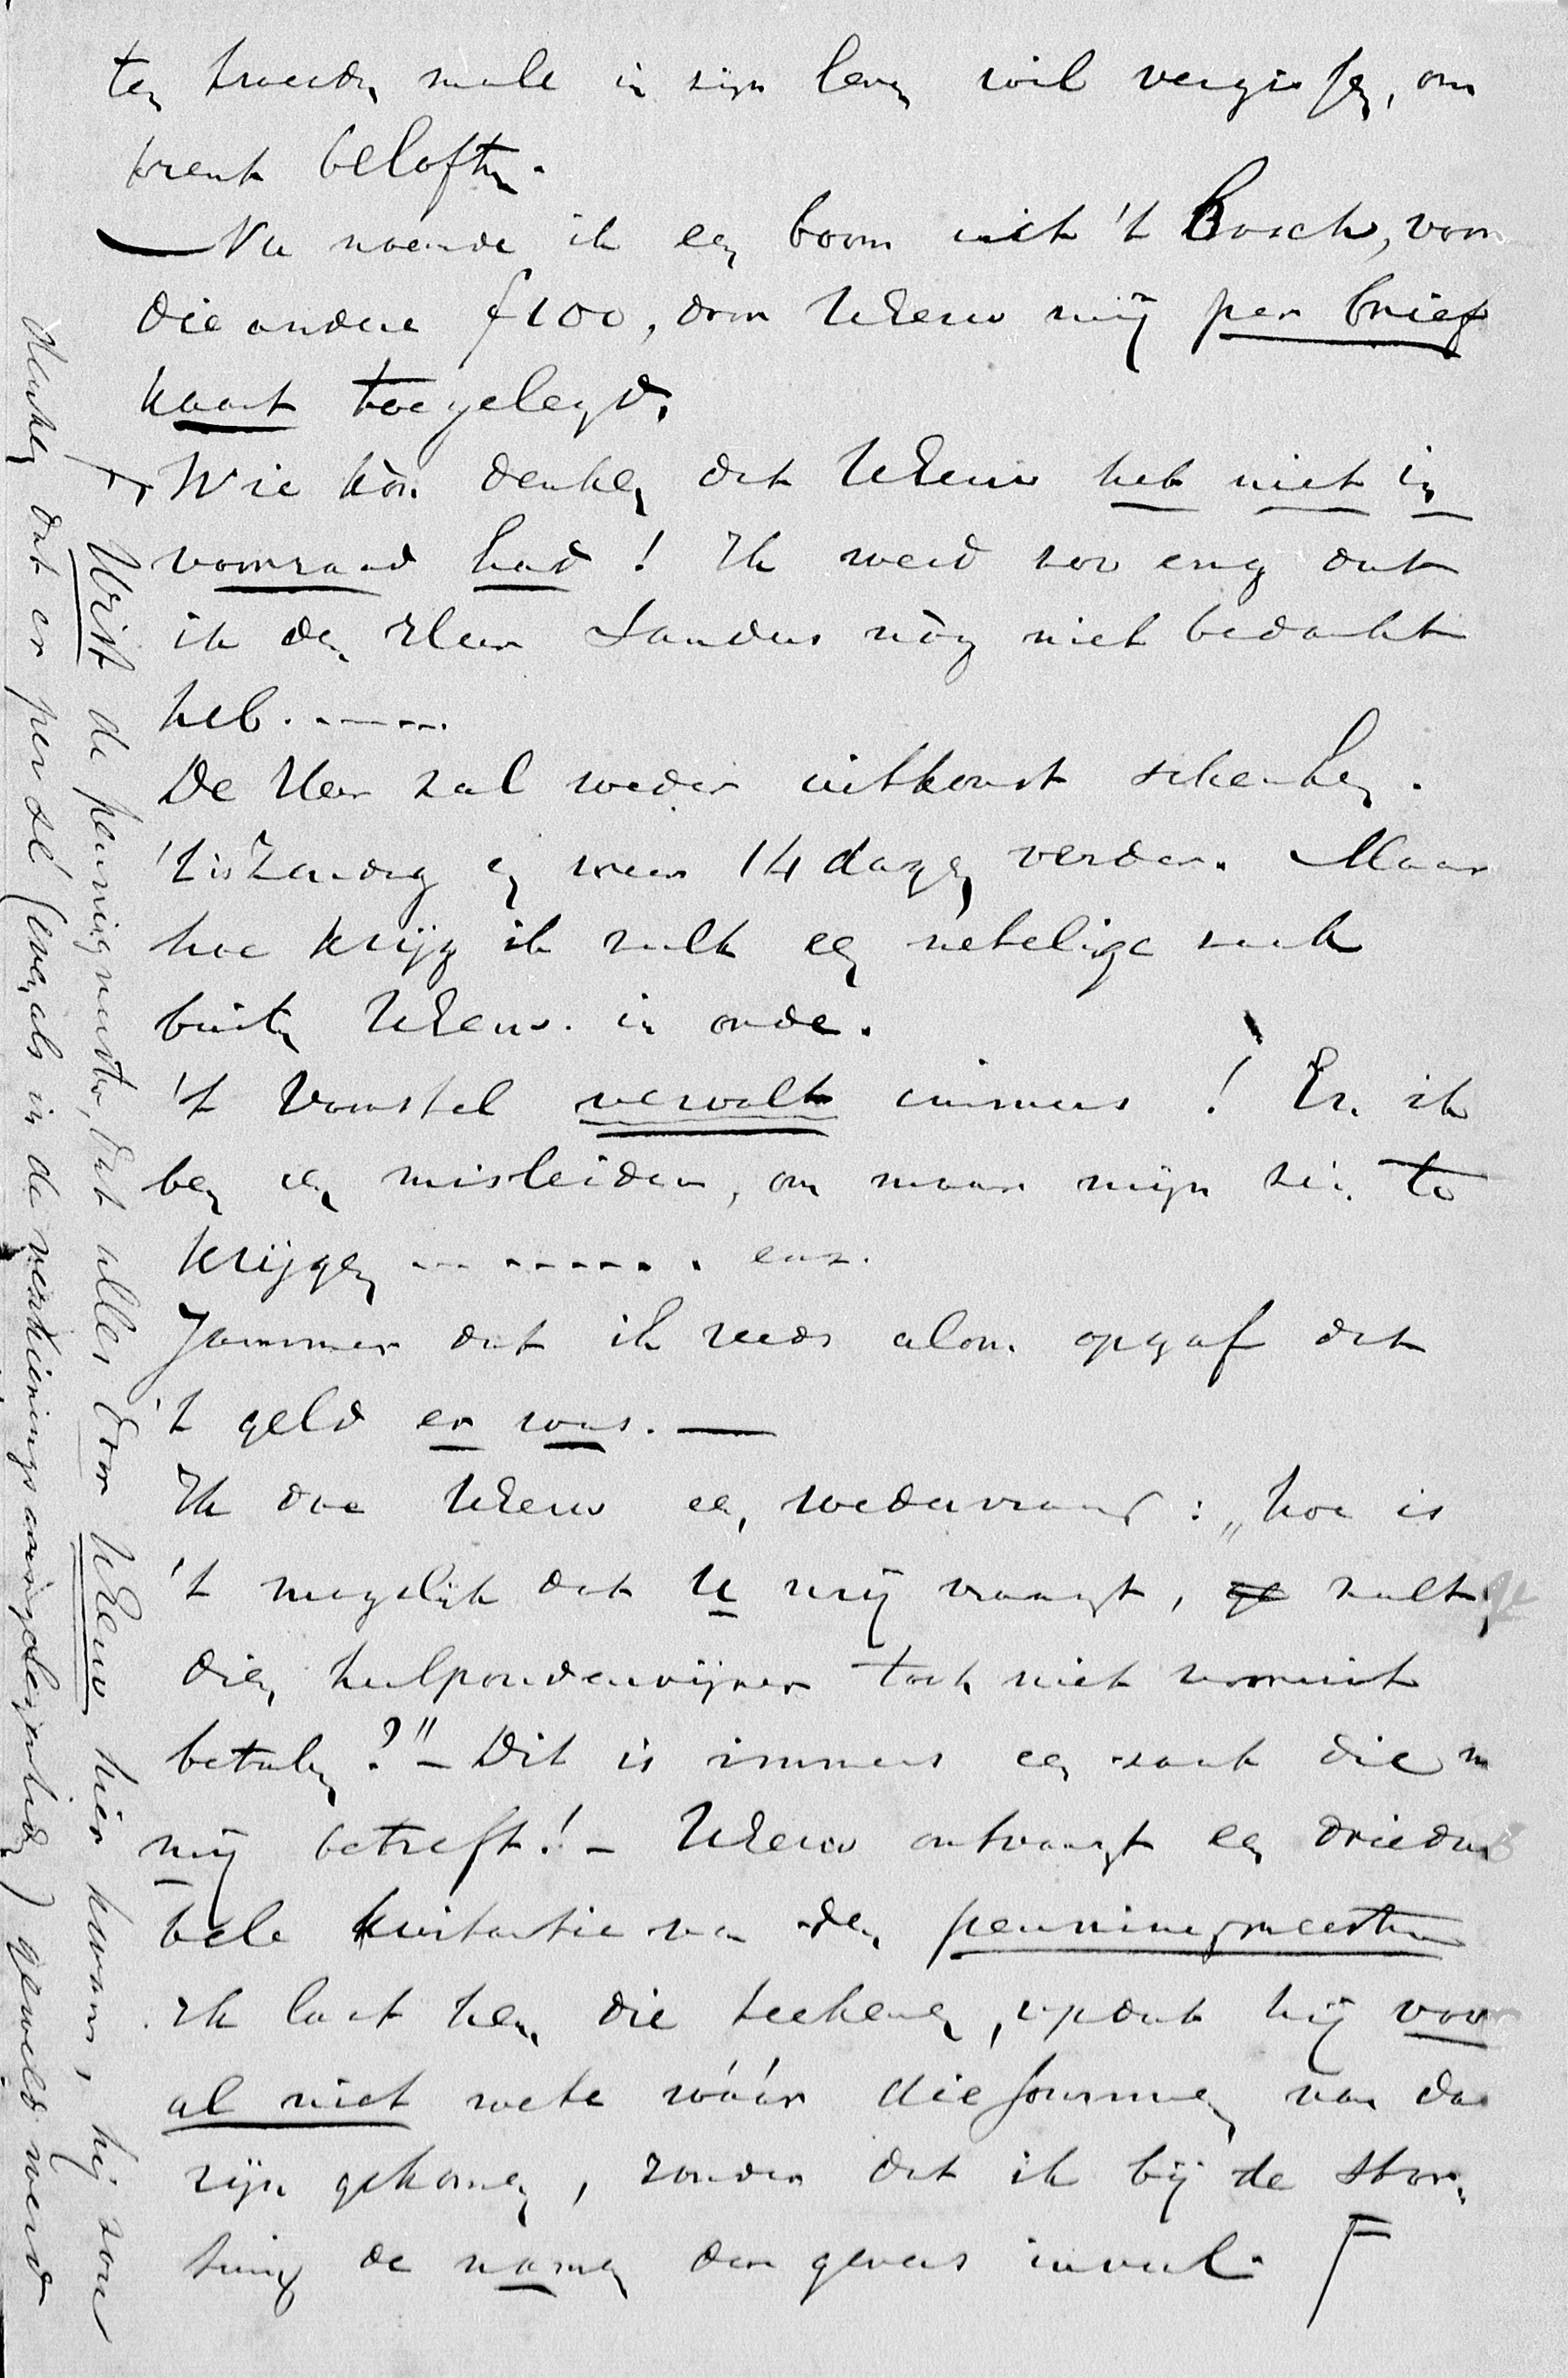 ten tweeden male in zijn leven wil vergissen, om
trent beloften.
— Nu noemde ik een boom uit 't Bosch, voor
die andere f 100, door UEerw mij per brief
kaart toegelegd.
Wie kòn denken dat UEerw het niet in
voorraad had! Ik werd zoo eng dat
ik den Heer Sanders nòg niet bedankt
heb. - - - - -
De Heer zal weder uitkomst schenken.
't is Zondag en weer 14 dagen verder. Maar
hoe krijg ik zulk een netelige zaak
buiten UEerw. in orde.
't Voorstel vervalt immers! En ik
ben een misleider, om maar mijn zin te
krijgen - - - - - - - - enz.
Jammer dat ik reeds alom opgaf dat
't geld er was. —
Ik doe UEerw een wedervraag: „hoe is
't mogelijk dat U mij vraagt, zult ge
dien hulponderwijzer toch niet vooruit
betalen?" — Dit is immers een zaak die
mij betreft! — UEerw ontvangt een driedub
bele kwitantie van den penningmeester
Ik laat hem die teekenen, opdat hij voor
al niet wete wáár die sommen van daan
zijn gekomen, zonder dat ik bij de stor-
ting de namen der gevers invul.
Wist de penningmeester, dat alles door UEerw hier kwam, hij zou
denken dat er per sé (even als in de verkiezingsaangelegenheden) gewild werd